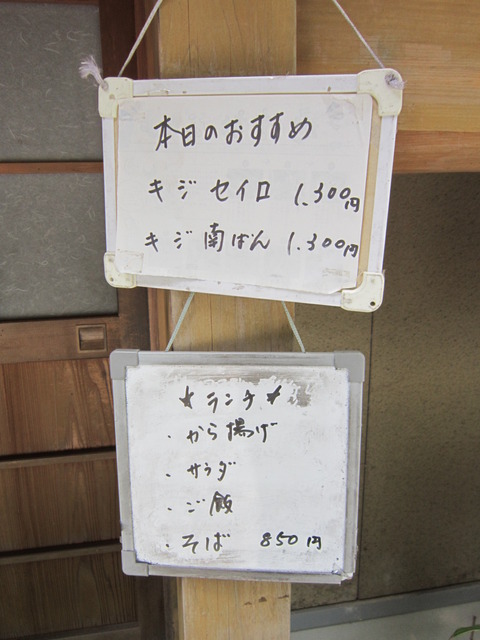 本日のおすすめ
キジ セイロ 1.300円
キジ 南ばん 1.300円
★ランチ★
・から揚げ
・サラダ
・ご飯
・そば 850円